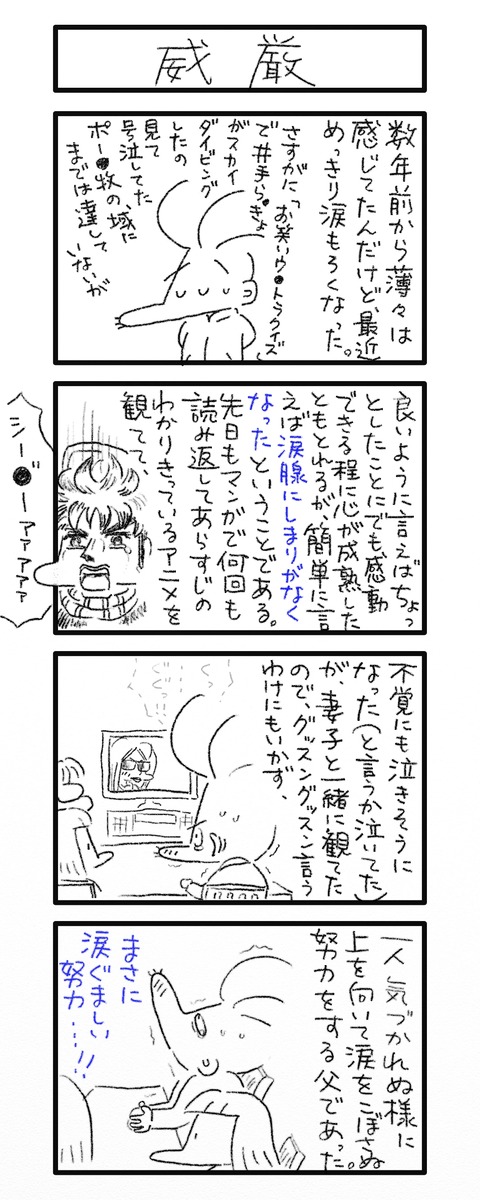 威厳
数年前から薄々は
感じてたんだけど、最近
めっきり涙もろくなった。
さすがに「お笑いウ●トラクイズ」
で井手らっきょ
がスカイ
ダイビング
したの
見て
号泣してた
ポー●牧の域に
までは達して
いないが
良いように言えばちょっ
としたことにでも感動
できる程に心が成熟した
ともとれるが、簡単に言
えば涙腺にしまりがなく
なったということである。
先日もマンガで何回も
読み返してあらすじの
わかりきっているアニメを
観てて、
シー●ーァァァァァ
不覚にも泣きそうに
なった(と言うか泣いてた)
が、妻子と一緒に観てた
ので、グッスングッスン言う
わけにもいかず、
一人気づかれぬ様に
上を向いて涙をこぼさぬ
努力をする父であった。
まさに
涙ぐましい
努力……!!